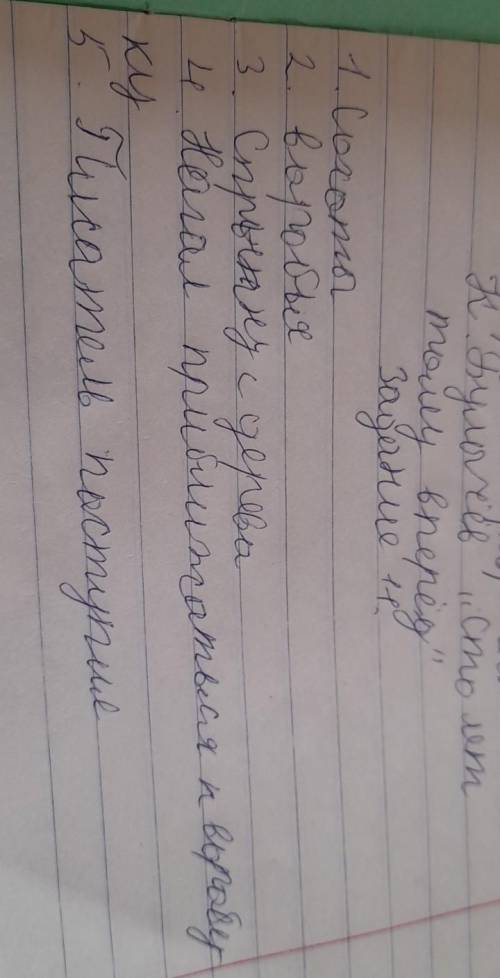 К. Булычёв "Сто лет
тому вперёд"
Задание 4.
1. Охоты
2. воробья
3. Спрыгнул с дерева
4. Начал приближаться к воробу
ку
5. Писатель поступил